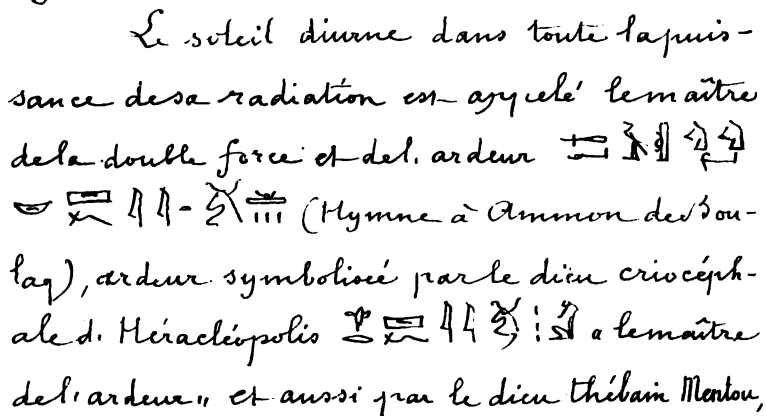 Le soleil diurne dans toute la puis-
sance de sa radiation est appelé le maître
de la double force et de l'ardeur
(Hymne à Ammon de Bou-
laq), ardeur symbolisée par le dieu criocéph-
ale d'Héracléopolis a le maître
de l'ardeur" et aussi par le dieu thébain Mentou,